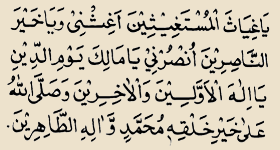 يَاغِيَاثَ الْمُسْتَغِيْثِيْنَ اَغِثْنِيْ وَيَاخَيْرَ
النَّاصِرِيْنَ اُنْصُرْنِيْ يَامَالِكَ يَوْمِ الدِّيْنِ
يَااِلٰهَ الْاَوَّلِيْنَ وَالْاٰخِرِيْنَ وَصَلَّى اللهُ
عَلٰى خَيْرِ خَلْقِهِ مُحَمَّدٍ وَّاٰلِهِ الطَّاهِرِيْنَ.